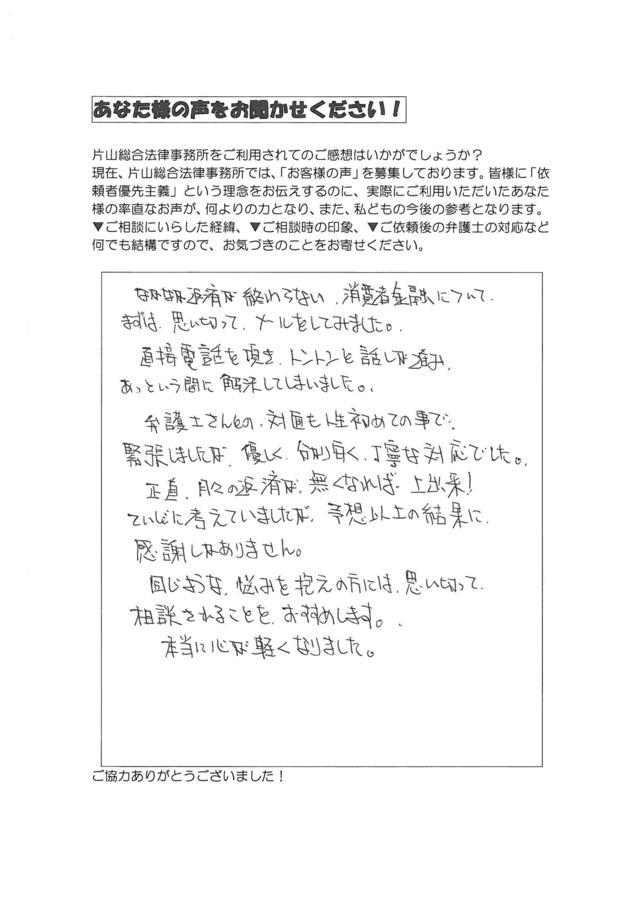 あなた様の声をお聞かせください！
片山総合法律事務所をご利用されてのご感想はいかがでしょうか？
現在、片山総合法律事務所では、「お客様の声」を募集しております。皆様に「依
頼者優先主義」という理念をお伝えするのに、実際にご利用いただいたあなた
様の率直なお声が、何よりの力となり、また、私どもの今後の参考となります。
▼ご相談にいらした経緯、▼ご相談時の印象、▼ご依頼後の弁護士の対応など
何でも結構ですので、お気づきのことをお寄せください。
なかなか返済が終わらない、消費者金融について
まずは、思い切って、メールをしてみました。
直接電話を頂き、トントンと話しが進み、
あっという間に解決してしまいました。
弁護士さんとの、対面も人生初めての事で、
緊張しましたが、優しく、分り易く、丁寧な対応でした。
正直、月々の返済が、無くなれば、上出来！
ていどに考えていましたが、予想以上の結果に、
感謝しかありません。
同じような、悩みを抱えの方には、思い切って
相談されることを、おすすめします。
本当に心が軽くなりました。
ご協力ありがとうございました！